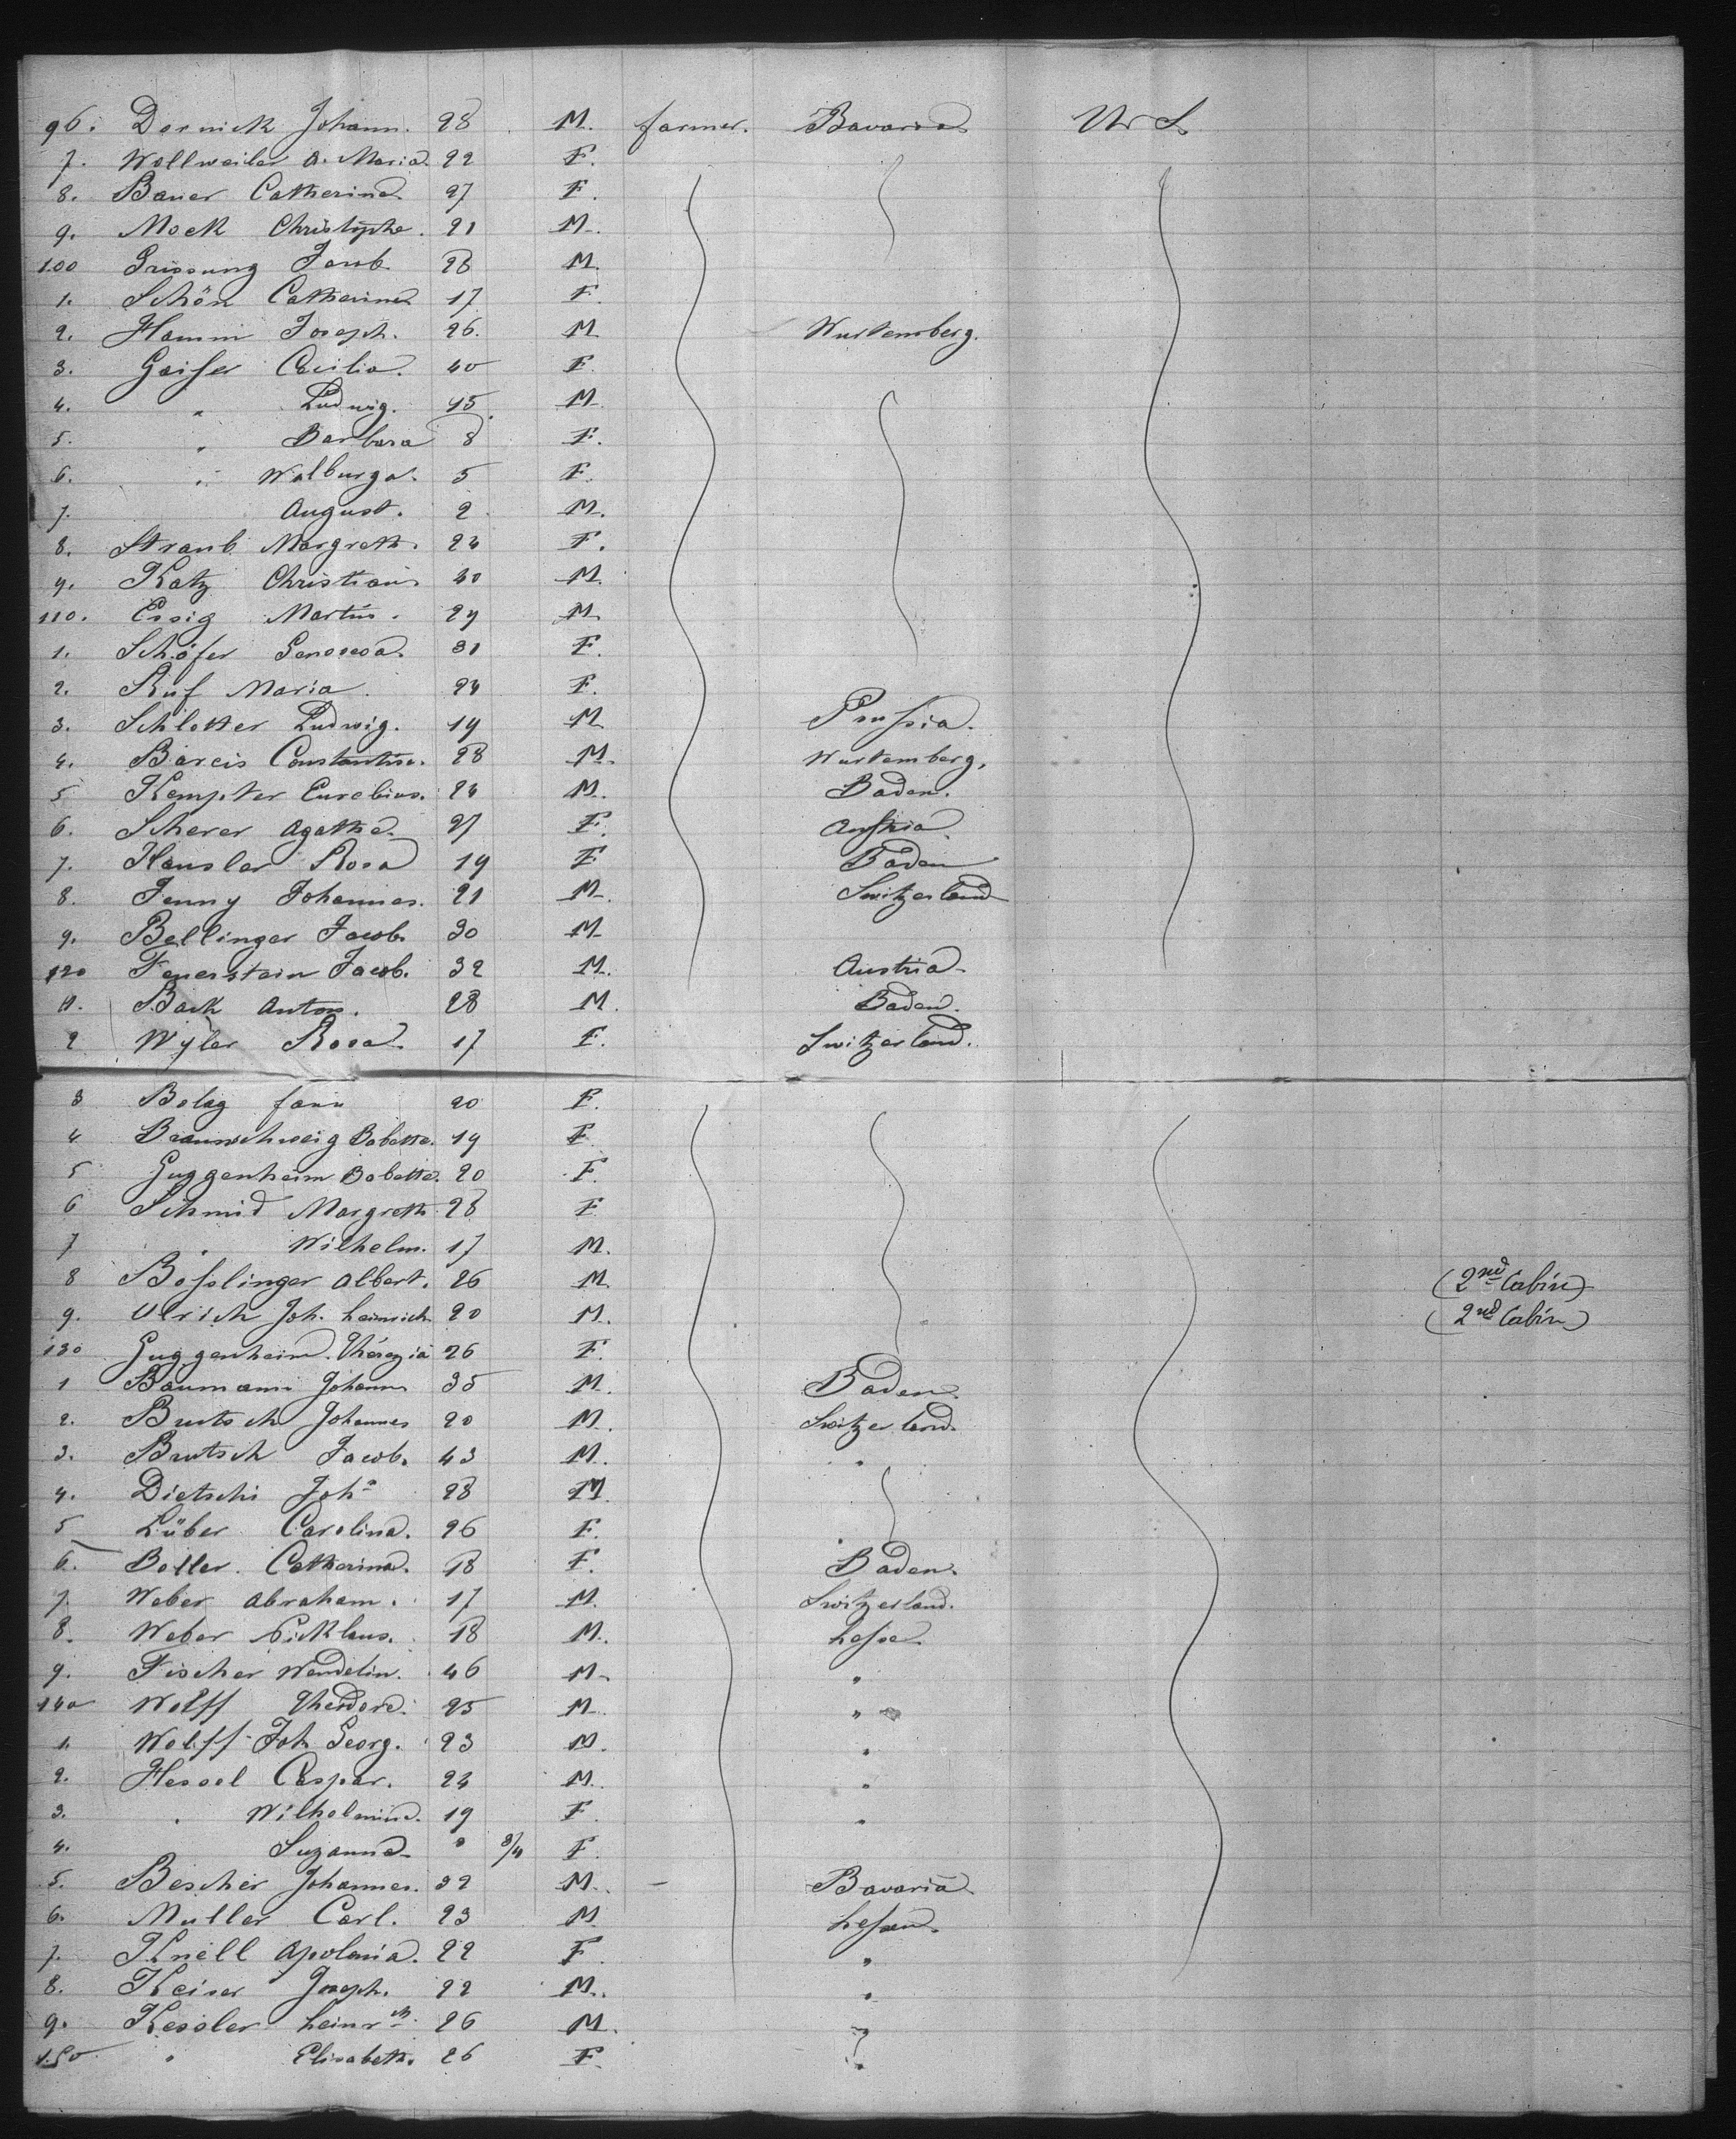 96. Dornick Johann. 28 M. farmer. Bavaria U. S.
7. Wollweiler A. Maria. 22 F.
8. Bauer Catherina 27 F.
9. Mock Christophe. 21 M.
100 Grissung Jacob 28 M.
1. Schön Catherina 17 F.
2. Hamm Joseph. 26. M Wurtemberg.
3. Gaiser Cacilia. 40 F.
4. " Ludwig. 15. M
5. " Barbara 8 F.
6. " Walburga. 5 F.
7. August. 2. M.
8. Straub Margreth. 24 F.
9. Katz Christian 40 M.
110. Essig Martin. 29 M
1. Schöfer Genoseva. 31 F.
2. Ruf Maria. 24 F.
3. Schlotter Ludwig. 19 M Prussia.
4. Bareis Constantin. 28 M. Wurtemberg.
5 Kempter Eusebius. 24 M. Baden.
6. Scherer Agatha. 27 F. Austria.
7. Hausler Rosa 19 F Baden
8. Jenny Johannes. 21 M. Switzerland
9. Bellinger Jacob. 30 M
120 Feuerstein Jacob. 32 M. Austria
11. Back Anton. 28 M. Baden.
2 Wyler Rosa. 17 F. Switzerland.
3 Bolag fann 20 F.
4 Braunschweig Babette. 19 F
5 Guggenheim Babette. 20 F.
6 Schmid Margreth 28 F
7 " Wilhelm. 17 M.
8 Bosslinger Albert. 26 M. (2nd Cabin)
9. Ulrich Joh. heinrich 20 M. (2nd Cabin)
130 Guggenheim. Thérezia 26 F.
1 Baumann Johann 35 M. Baden.
2. Brutsch Johannes 20 M. Switzerland.
3. Brutsch Jacob. 43 M. "
4. Dietschi Joh n 28 M.
5 Lüber Carolina. 26 F.
6. Boller. Catherina. 18 F. Baden.
7. Weber Abraham. 17 M. Switzerland.
8. Weber Nicklaus. 18 M. hesse.
9. Fischer Wendelin. 46 M. "
140 Wolff Theodore. 25 M. "
1. Wolff Joh Georg. 23 M. "
2. Hessel Caspar. 24 M. "
3. " Wilhelmina. 19 F. "
4. Suzanna " 3/4 F.
5. Bescher Johannes. 32 M. — Bavaria.
6. Muller Carl. 23 M hessen.
7. Knell Apolonia. 22 F. "
8. Keiser Joseph. 22 M. "
9. Kessler heinrch 26 M. "
150 " Elisabeth. 26 F. "